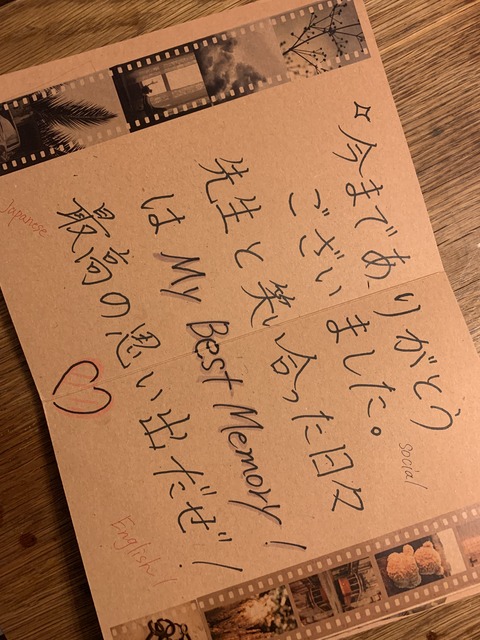 今まであありがとう
ございました。
先生と笑い合った日々
は My Best Memory!
最高の思い出だぜ!
social
Japanese
English